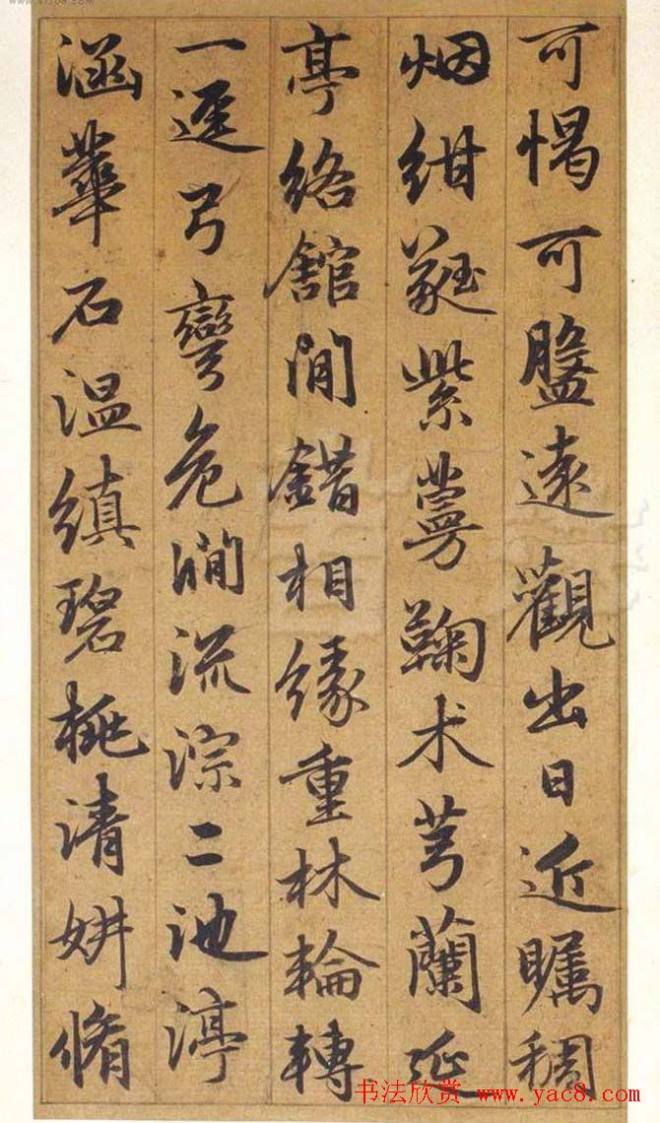 可愒可盤遠觀出日近矚稠
烟紺蕤紫蕚鞠术芎蘭延
亭絡館間錯相緣重林輪轉
一逕弓彎危澗流淙二池渟
涵華石温縝碧桃清妍脩
书法欣赏 www.yac8.com